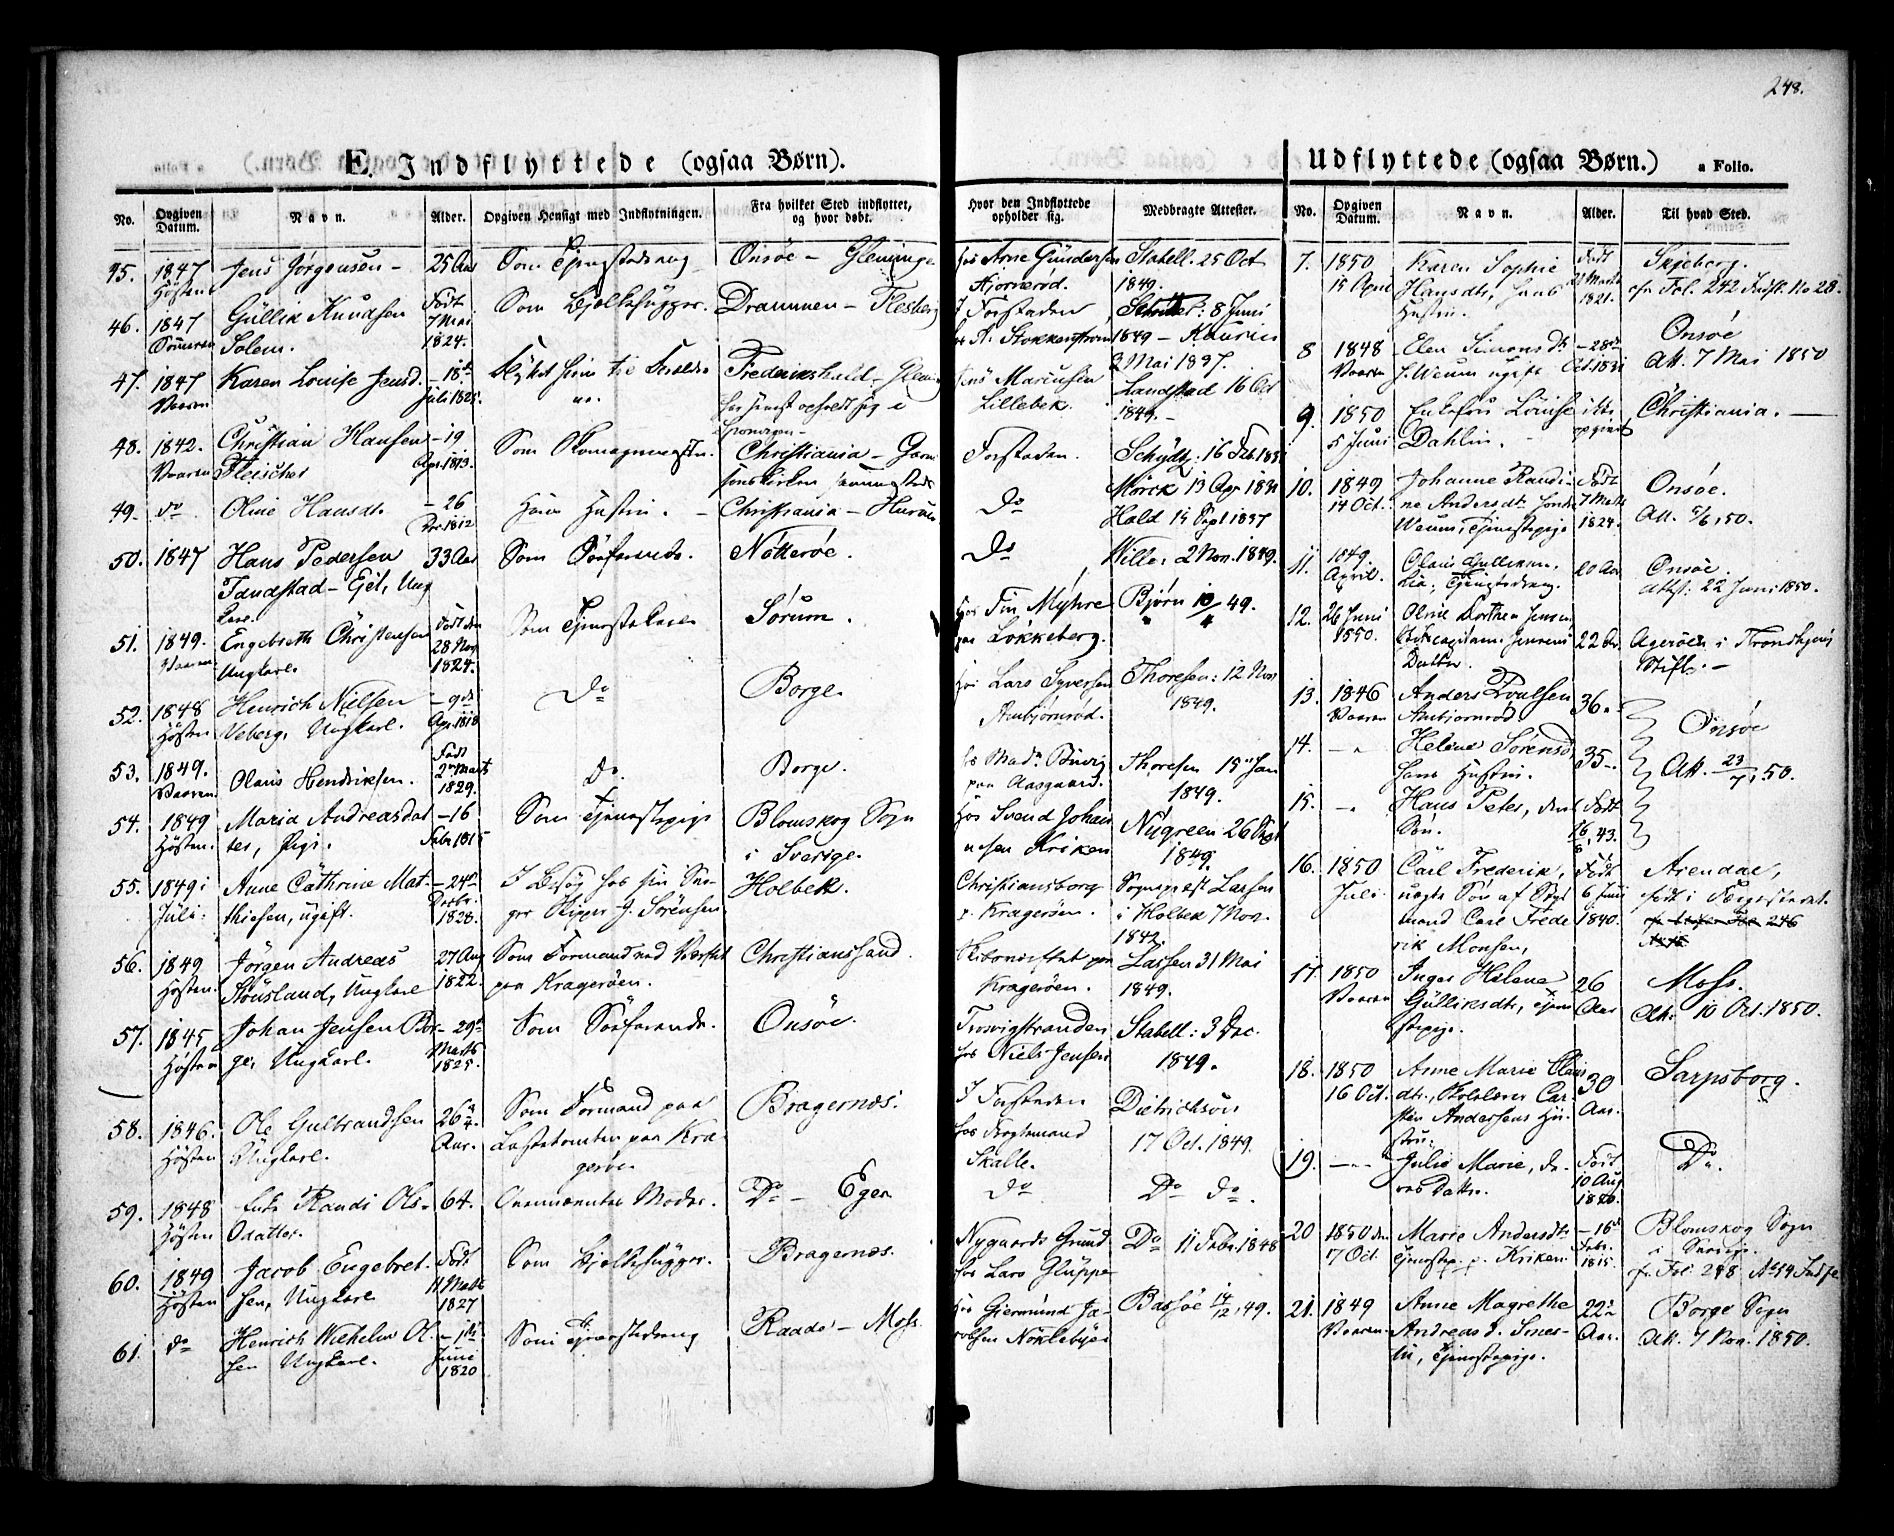 248.
E. Indflyttede (ogsaa Børn).
Udflyttede (ogsaa Børn.)
a Folio.
No. Opgiven Datum. Navn. Alder. Opgiven Hensigt med Indflytningen. Fra hvilket Sted indflyttet, og hvor døbt. Hvor den Indflyttede opholder sig. Medbragte Attester.
No. Opgiven Datum. Navn. Alder. Til hvad Sted.
45. 1847 Høsten Jens Jørgensen – 25 Aar Som Tjenestedreng Onsøe – Glemminge hos Arne Gundersen Stabell. 25 Oct 1849.
46. 1847 Sommeren Gullik Knudsen Solem. Født 7 Mai 1824. Som Bjelkehugger. Drammen – Flesberg I Forstaden 8 Juni 1849 –
47. 1847 Vaaren Karen Louise Jensd. – 18de Juli 1825. Frederikshald – Jens Mariusen Lillebek. Landstad 16 Oct 1849. –
48. 1842. Vaaren Christian Hansen Fleischer – 19 Apr. 1813. Christiania – Forstaden. Schydtz: 16 Feb.
49. do Oline Hansdt. – 26 1812 Hans Hustru. – Christiania – Do Mörck 13 Apr Hald 15 Sept 1837
50. 1847 Hans Pedersen 33 Aar Som Söefarende. Nötteröe. Do Wille: 2 Nov. 1849.
51. 1849. Vaaren Engebreth Christensen Ungkarl. Født den 28 Nov 1824. Som Tjenestekarl Sørum. hos Myhre paa Lökkeberg. Bjørn 49.
52. 1848 Høsten Henrich Nielsen Veberg, Ungkarl. – 9de Apr. 1818 Do Borge. hos Lars Syversen Ambjørnsrød. Thoresen: 12 Nov 1849.
53. 1849. Vaaren Olaus Hendriksen. Født 2den Marts 1829. Do. Borge. paa Aasgaard. Thoresen 15 Jan 1849.
54. 1849 Høsten. Maria Andreasdat- ter, Pige. – 16 Febr 1815 Som Tjenestepige Blomskog Sogn i Sverige. hos Svend Johan- nesen Kriken Nugreen 26 Sept 1849.
55. 1849 i Juli. Anne Cathrine Mat- thiesen, ugift. – 24de Decbr. 1828. I Besøg hos sin Sva- ger Skipper J. Sörensen Holbek. Christiansborg p. Kragerøen. Sognepræst Lassen i Holbek 7 Nov. 1842.
56. 1849 Høsten. Jörgen Andreas Stousland, Ungkarl 27 Aug 1822. Som Formand ved Værftet paa Kragerøen. Christianssand. Kragerøen. Lassen 31 Mai 1849.
57. 1845 Høsten Johan Jensen Bor- ge, Ungkarl. – 29de Marts 1825. Som Söefarende. Onsöe. hos Niels Jensen Stabell: 3 Dec. 1849.
58. 1846. Høsten Ole Gulbrandsen Ungkarl. 26 Aar. Som Formand paa Lastetomten paa Kra- gerøe Bragernæs. I Forstaden hos Fogtmand Skalle. Dietrichson 17 Oct. 1849.
59. 1848 Høsten Enke Randi Ols- datter 64. Ovennævntes Moder. Do – Eger Do Do do.
60. 1849 Høsten Jacob Engebret- sen, Ungkarl Født 11 Marts 1827 Som Bjelkehugger. Bragernæs. Nygaards Grund hos Lars Gluppe Do 11 Febr. 1848
61. do Henrich Wilhelm Ol- sen Ungkarl. – 1ste Juni 1820 Som Tjenestedreng Raade – Moss. hos Gjermund Ja- cobsen Nöklebye Bassöe 14/12, 49.
7. 1850 15 April Karen Sophie Hansdt, hans Hustru. Født 21 Marts 1821. Skjeberg. cfr Fol. 242 Indfl. No 28.
8 1848 Vaaren Elen Simonsdt. J. Weum ugift – 28de Oct. 1831 Onsöe Att. 7 Mai 1850
9. 1850 5 Juni Enkefru Louise Dahlin. – ikke opgivet Christiania. –
10. 1849 14 Oct. Johanne Randi- ne Andersdt. Weum, Tjenestepige Født 7 Marts 1824. Onsöe. Att. 5/6, 50.
11. 1849 April. Olaus Gulliksen Lie, Tjenestedreng. 20 Aar Onsöe. Attst: 22 Juni 1850.
12. 26 Juni 1850. Oline Dorthea Jensen Jensens Datter. 22 Aar. Agerøen i Trondhjems Stift. –
13. 1846 Vaaren Anders Poulsen Ambjørnrød 36 Onsöe Att. 23/7, 50.
14. – Helene Sörensd. hans Hustru. 35 –
15. – Hans Peter, deres Søn. Født 16/8, 43.
16. 1850 Juli Carl Frederik, uægte Søn af Carl Frede- rik Monsen, Født 6 Juni 1840. Arendal,
17 1850 Vaaren Inger Helene Gulliksdt, Tjene- stepige. 26 Aar Moss. Att. 10 Oct. 1850.
18. 1850 16 Oct. Anne Marie Claus- dt., Car- sten Andersens Hu- stru. 30 Aar. Sarpsborg.
19. – Julie Marie, de- res Datter. Født 10 Aug Do.
20 1850 den 7 Oct. Marie Andersdt. Tjenestep. p. Kriken – 16de Febr. 1815. Blomskog Sogn i Sverige. cfr. Fol. 248 No 54 Indfl.
21. 1849 Vaaren Anne Magrethe Andreasd. Smes- lie, Tjenestepige. 22 Aar. Borge Sogn Att. 7 Nov. 1850.